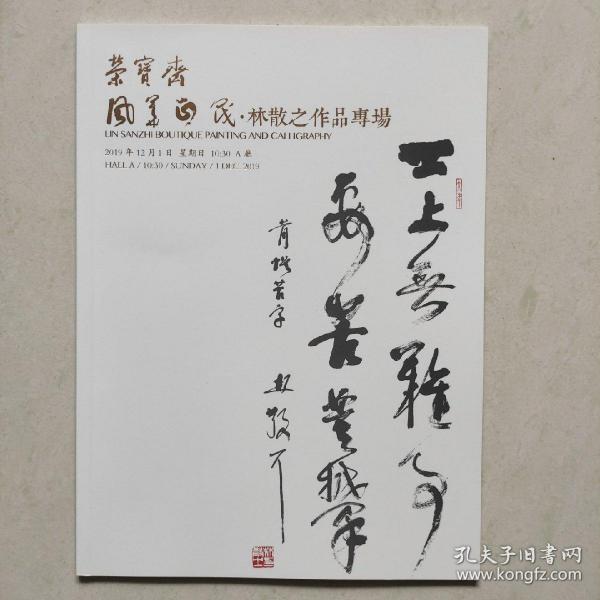 榮寶齋
風華正茂·林散之作品專場
LIN SANZHI BOUTIQUE PAINTING AND CALLIGRAPHY
2019 年 12 月 1 日 星期日 10:30 A 廳
HALL A / 10:30 / SUNDAY / 1 DEC. 2019
世上無難事
要苦豐攀
林散耳
孔夫子旧书网
www.kongfz.com